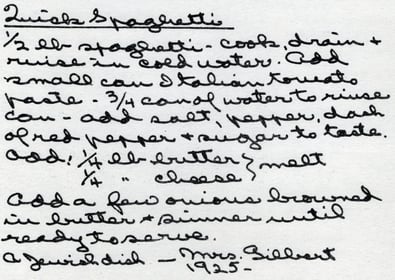 Quick Spaghetti
1/2 lb spaghetti - cook, drain +
rinse in cold water. Add
small can Italian tomato
paste - 3/4 can of water to rinse
can - add salt, pepper, dash
of red pepper + sugar to taste.
Add: 1/4 lb butter } melt
1/4 " cheese
Add a few onions browned
in butter + simmer until
ready to serve.
A Jewish dish - Mrs. Gilbert
1925-